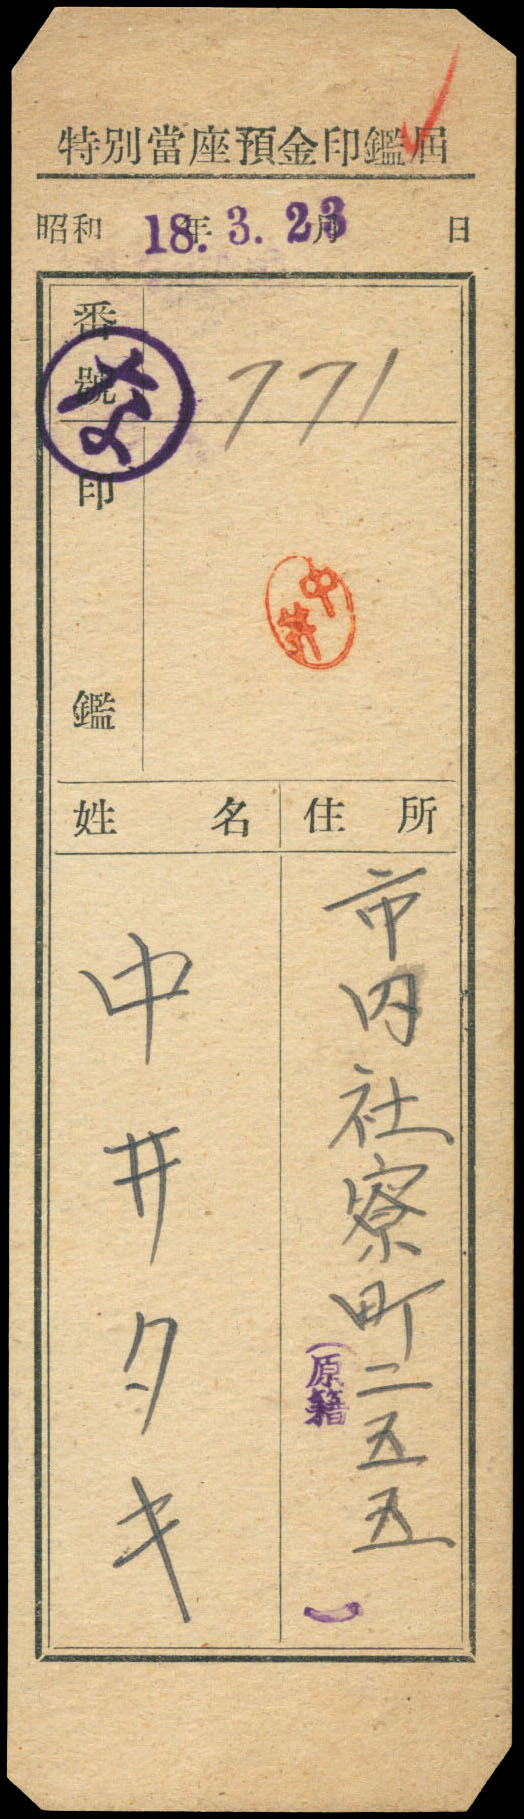 特別當座預金印鑑届
昭和 18年 3月 23日
番號
771
印鑑
中井
住所
姓名
市内社寮町二五五
(原籍 )
中井タキ